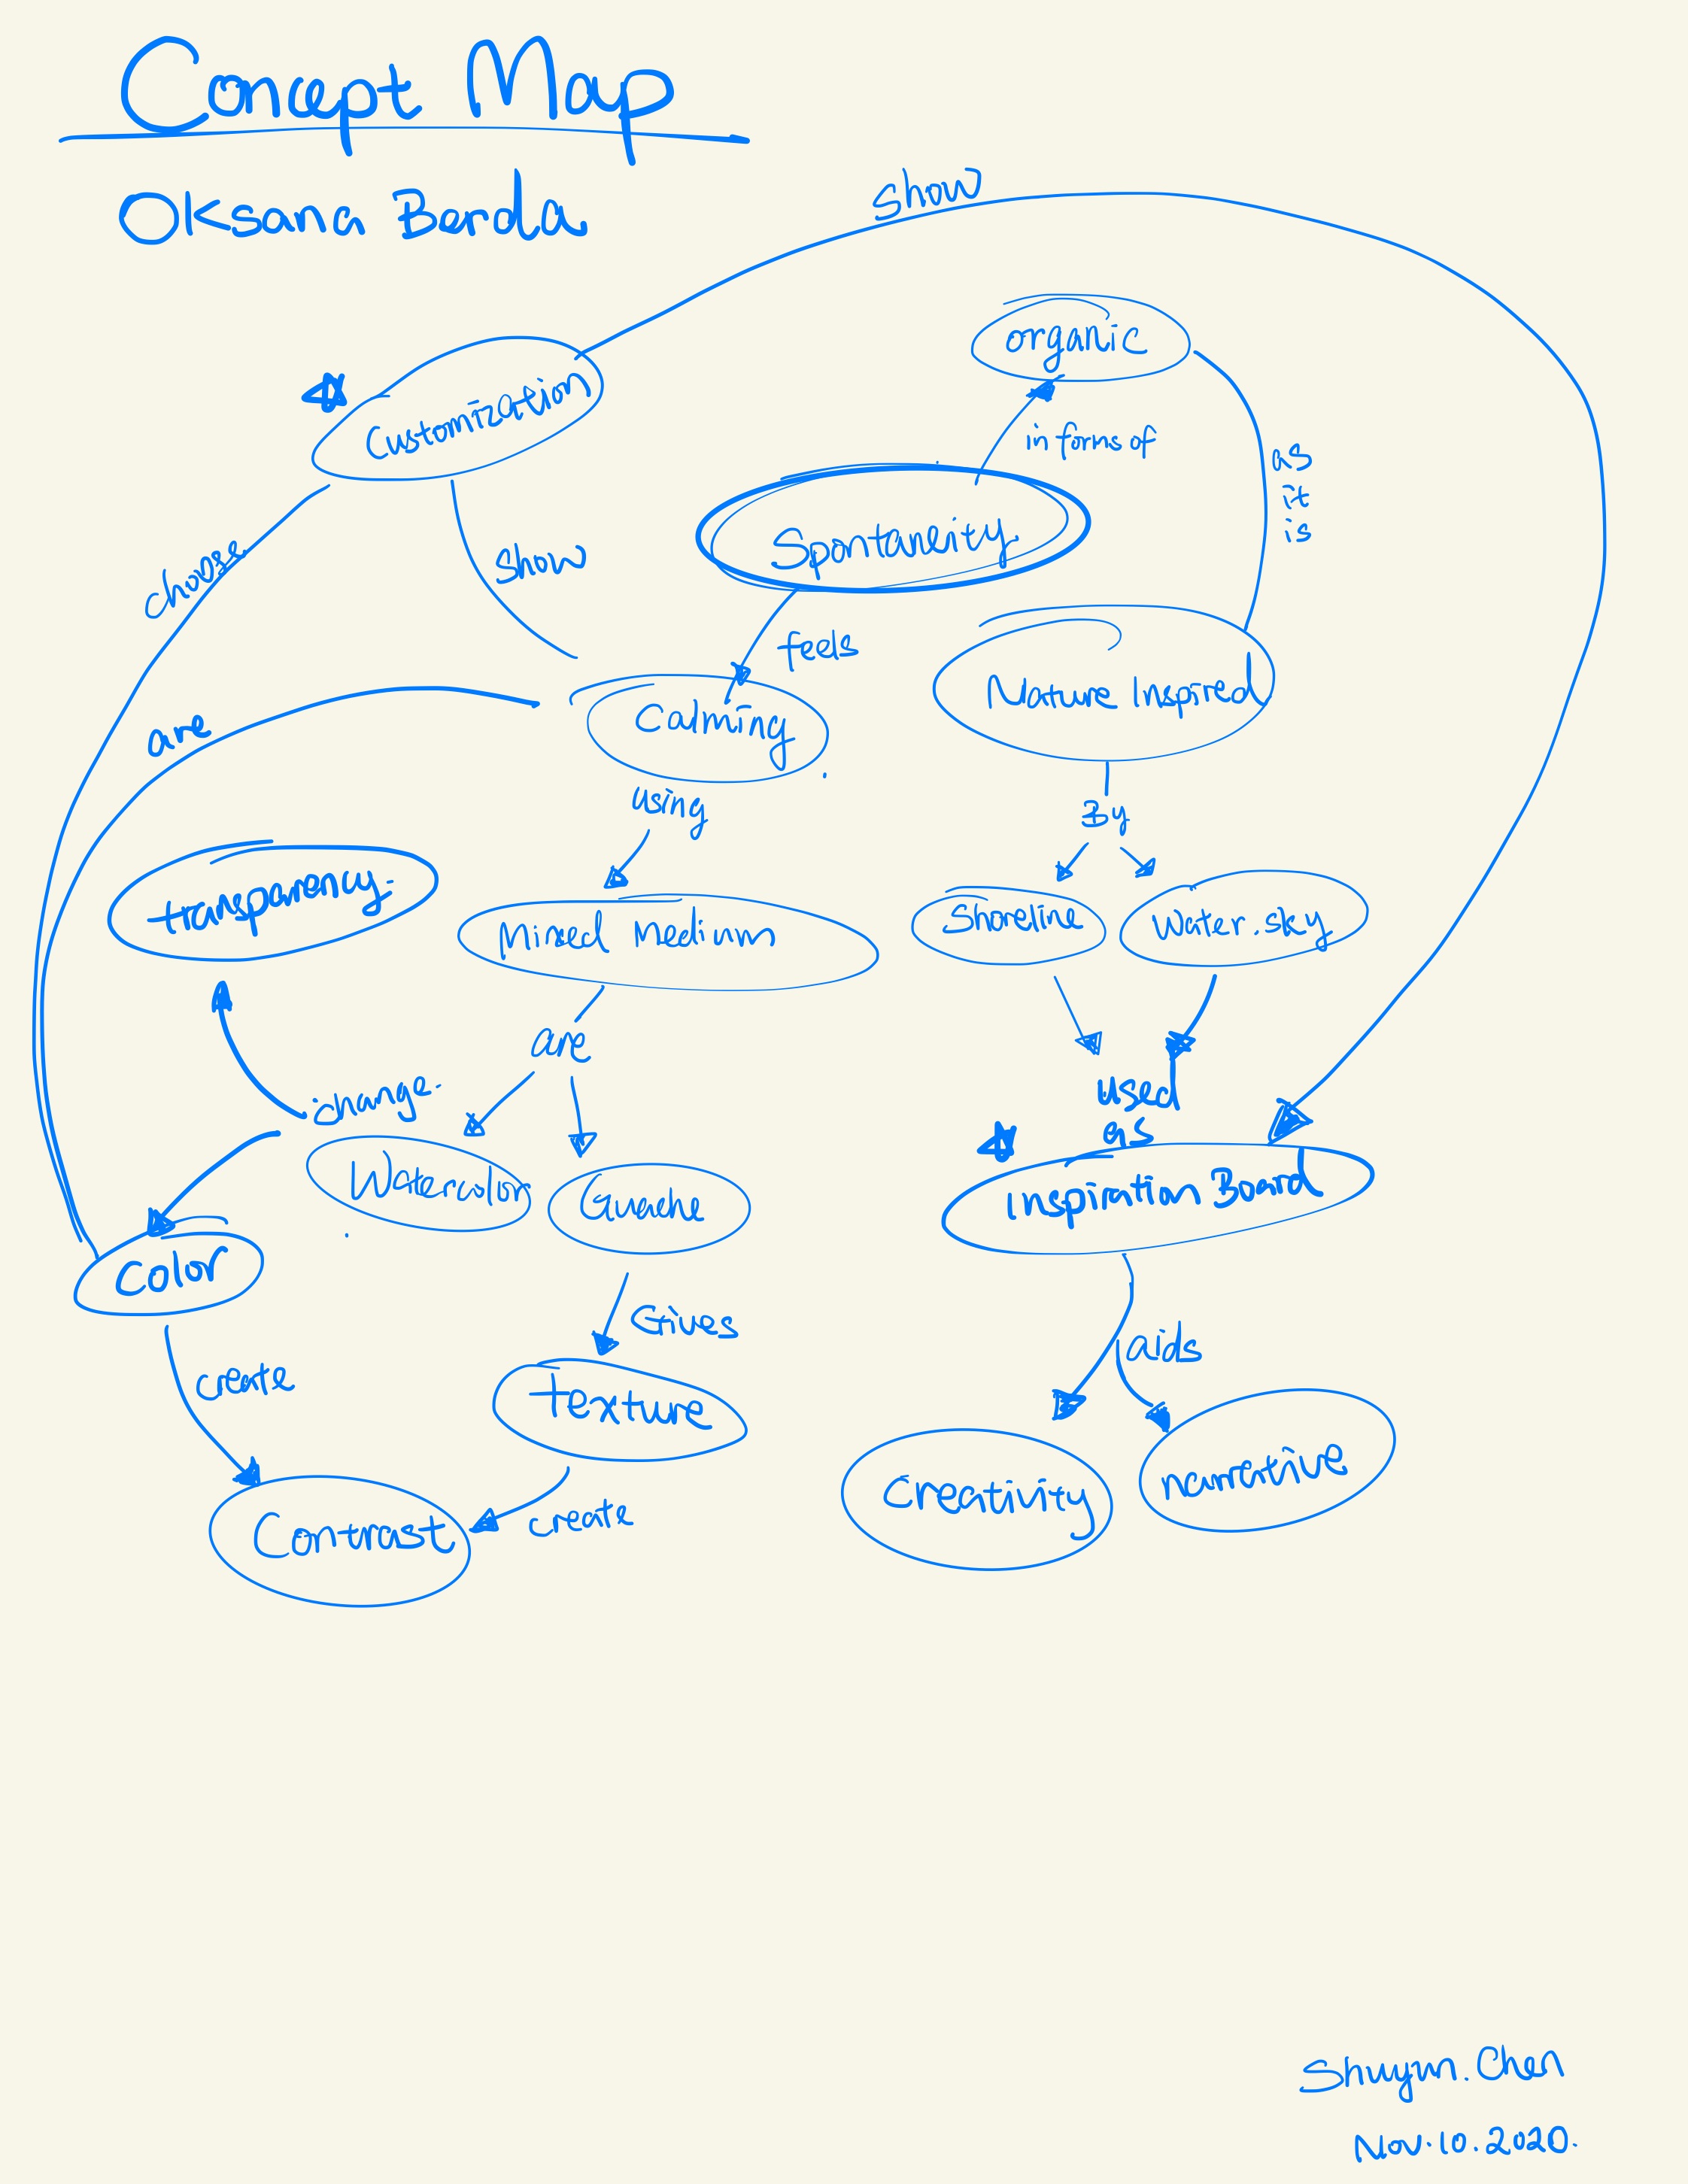 Concept Map
Oksana Berda
show
organic
Customization
in forms of
as
it
is
Spontaneity
choose
show
feels
Nature Inspired
Calming
are
using
By
transparency.
Mixed Medium
Shoreline
Water.sky
are
change.
used
as
Watercolor
Guache
Inspiration Board
Color
Gives
aids
create
texture
Creativity
narrative
Contrast
create
Chen
Nov.10.2020.